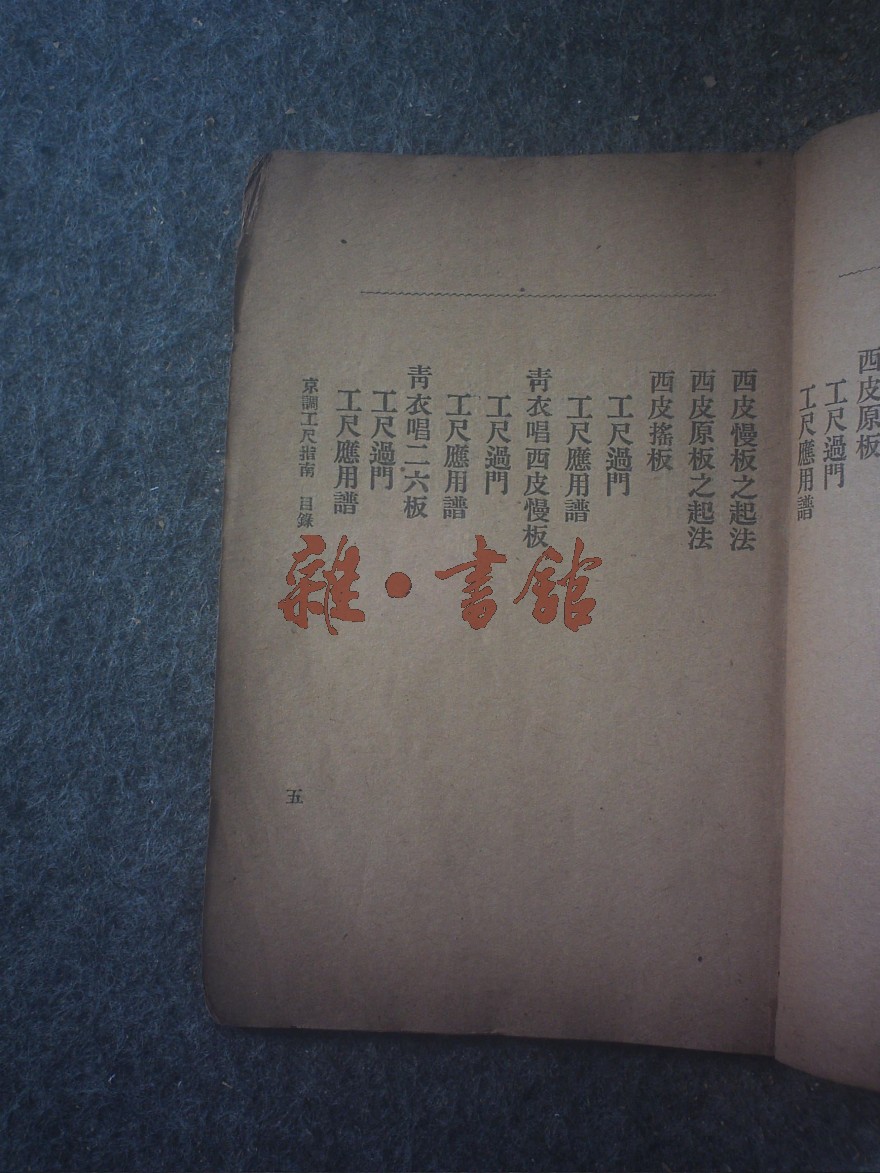 西皮原板
工尺過門
工尺應用譜
西皮慢板之起法
西皮原板之起法
西皮搖板
工尺過門
工尺應用譜
青衣唱西皮慢板
工尺過門
工尺應用譜
青衣唱二六板
工尺過門
工尺應用譜
京調工尺指南 目錄
五
雜·書館